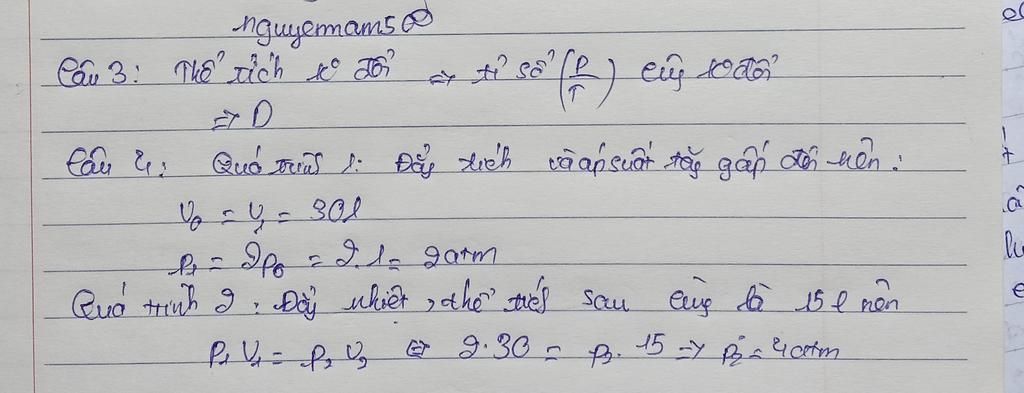 nguyennam50
Câu 3: Thể tích k° đổi ⇒ tỉ số (P/T) cũg k° đổi
⇒ D
Câu 4: Quá trình 1: Đẳg tích và áp suất tăg gấp đôi nên:
V₀ = V₁ = 30l
P₁ = 2P₀ = 2.1 = 2atm
Quá trình 2: Đẳg nhiệt, thể tích sau cùg là 15l nên
P₁V₁ = P₂V₂ ⇔ 2.30 = P₂.15 ⇒ P₂ = 4atm